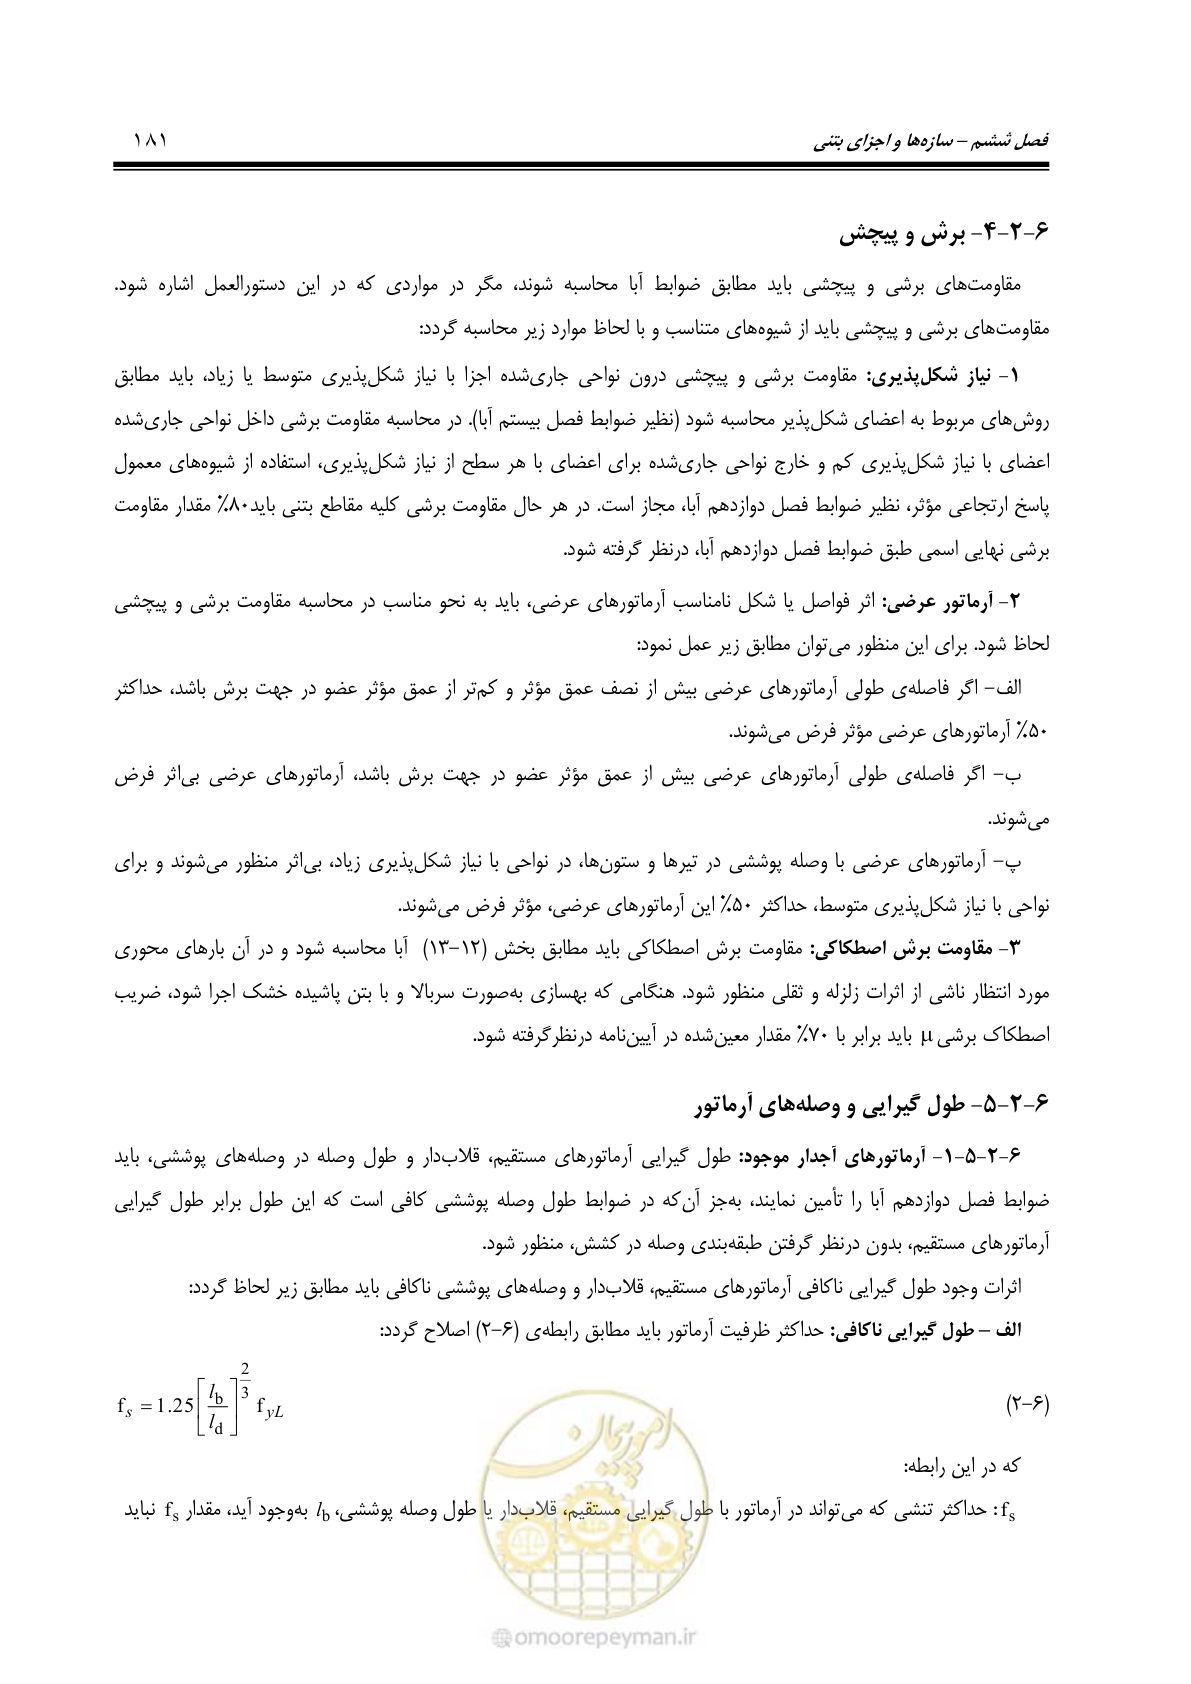 فصل ششم – سازه‌ها و اجزای بتنی ۱۸۱
۶-۲-۴- برش و پیچش
مقاومت‌های برشی و پیچشی باید مطابق ضوابط آبا محاسبه شوند، مگر در مواردی که در این دستورالعمل اشاره شود.
مقاومت‌های برشی و پیچشی باید از شیوه‌های متناسب و با لحاظ موارد زیر محاسبه گردد:
۱- نیاز شکل‌پذیری: مقاومت برشی و پیچشی درون نواحی جاری‌شده اجزا با نیاز شکل‌پذیری متوسط یا زیاد، باید مطابق
روش‌های مربوط به اعضای شکل‌پذیر محاسبه شود (نظیر ضوابط فصل بیستم آبا). در محاسبه مقاومت برشی داخل نواحی جاری‌شده
اعضای با نیاز شکل‌پذیری کم و خارج نواحی جاری‌شده برای اعضای با هر سطح از نیاز شکل‌پذیری، استفاده از شیوه‌های معمول
پاسخ ارتجاعی مؤثر، نظیر ضوابط فصل دوازدهم آبا، مجاز است. در هر حال مقاومت برشی کلیه مقاطع بتنی باید۸۰٪ مقدار مقاومت
برشی نهایی اسمی طبق ضوابط فصل دوازدهم آبا، درنظر گرفته شود.
۲- آرماتور عرضی: اثر فواصل یا شکل نامناسب آرماتورهای عرضی، باید به نحو مناسب در محاسبه مقاومت برشی و پیچشی
لحاظ شود. برای این منظور می‌توان مطابق زیر عمل نمود:
الف- اگر فاصله‌ی طولی آرماتورهای عرضی بیش از نصف عمق مؤثر و کم‌تر از عمق مؤثر عضو در جهت برش باشد، حداکثر
۵۰٪ آرماتورهای عرضی مؤثر فرض می‌شوند.
ب- اگر فاصله‌ی طولی آرماتورهای عرضی بیش از عمق مؤثر عضو در جهت برش باشد، آرماتورهای عرضی بی‌اثر فرض
می‌شوند.
پ- آرماتورهای عرضی با وصله پوششی در تیرها و ستون‌ها، در نواحی با نیاز شکل‌پذیری زیاد، بی‌اثر منظور می‌شوند و برای
نواحی با نیاز شکل‌پذیری متوسط، حداکثر ۵۰٪ این آرماتورهای عرضی، مؤثر فرض می‌شوند.
۳- مقاومت برش اصطکاکی: مقاومت برش اصطکاکی باید مطابق بخش (۱۲-۱۳) آبا محاسبه شود و در آن بارهای محوری
مورد انتظار ناشی از اثرات زلزله و ثقلی منظور شود. هنگامی که بهسازی به‌صورت سربالا و با بتن پاشیده خشک اجرا شود، ضریب
اصطکاک برشی μ باید برابر با ۷۰٪ مقدار معین‌شده در آیین‌نامه درنظرگرفته شود.
۶-۲-۵- طول گیرایی و وصله‌های آرماتور
۶-۲-۵-۱- آرماتورهای آجدار موجود: طول گیرایی آرماتورهای مستقیم، قلاب‌دار و طول وصله در وصله‌های پوششی، باید
ضوابط فصل دوازدهم آبا را تأمین نمایند، به‌جز آن‌که در ضوابط طول وصله پوششی کافی است که این طول برابر طول گیرایی
آرماتورهای مستقیم، بدون درنظر گرفتن طبقه‌بندی وصله در کشش، منظور شود.
اثرات وجود طول گیرایی ناکافی آرماتورهای مستقیم، قلاب‌دار و وصله‌های پوششی ناکافی باید مطابق زیر لحاظ گردد:
الف – طول گیرایی ناکافی: حداکثر ظرفیت آرماتور باید مطابق رابطه‌ی (۶-۲) اصلاح گردد:
(۶-۲) f_s = 1.25 [l_b / l_d]^(2/3) f_yL
که در این رابطه:
f_s: حداکثر تنشی که می‌تواند در آرماتور با طول گیرایی مستقیم، قلاب‌دار یا طول وصله پوششی، l_b به‌وجود آید، مقدار f_s نباید
امور پیمان
omoorepeyman.ir